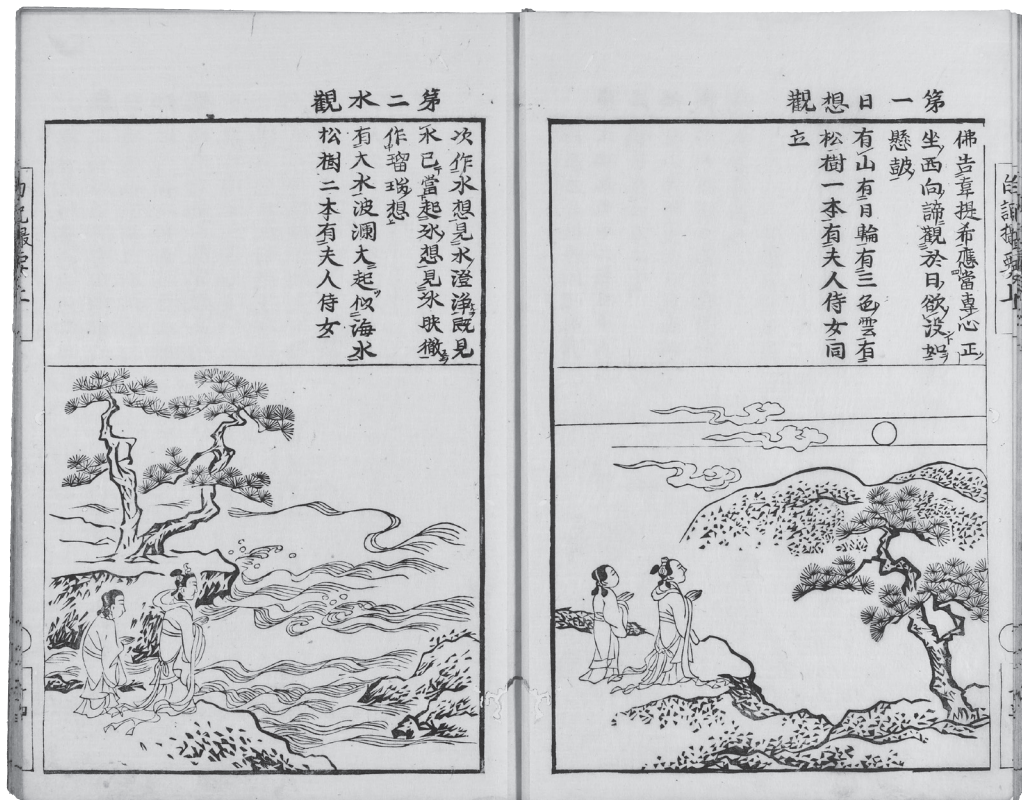 第一日想觀
佛告韋提希應當專心正
坐西向諦觀於日欲没如
懸皷
有山有日輪有三色雲有
松樹一本有夫人侍女同
立
第二水觀
次作水想見水澄淨既見
水已當起氷想見氷映徹
作瑠璃想
有大水波瀾大起似海水
松樹二本有夫人侍女